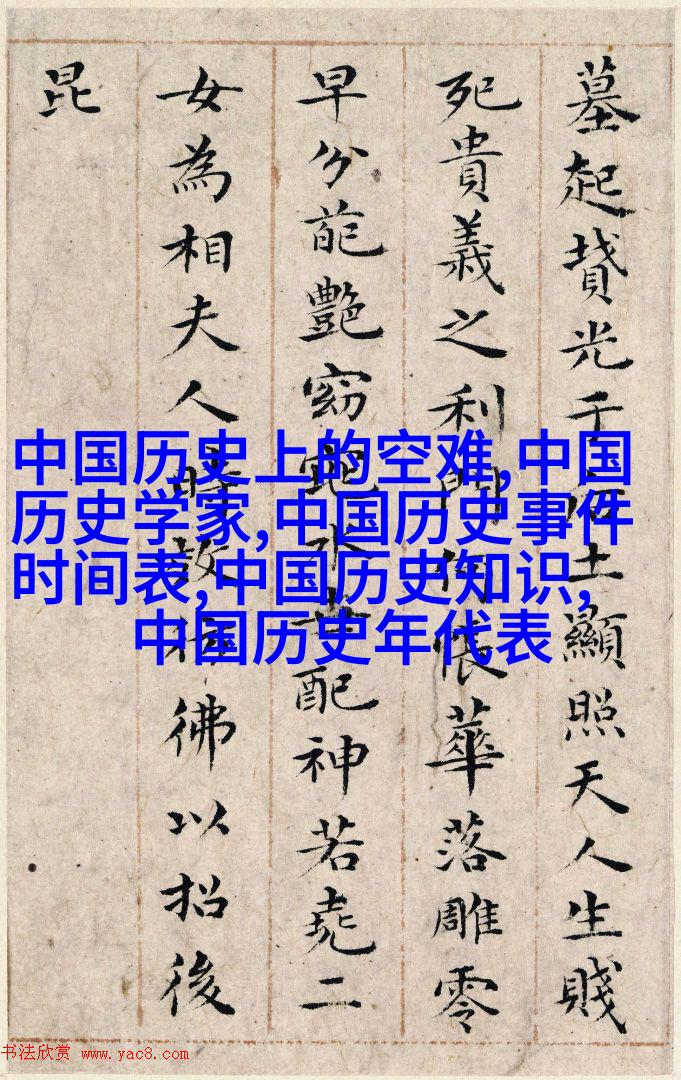 墓起墳光于后土顯照天人生賤
死貴義之利門何悵華落雕零
早分葩艶窈窕永世配神若堯二
女為相夫人時效彷彿以招後
昆
中国历史上的空难,中国
历史学家,中国历史事件
时间表,中国历史知识,
中国历史年代表
书法欣赏 www.yac8.com